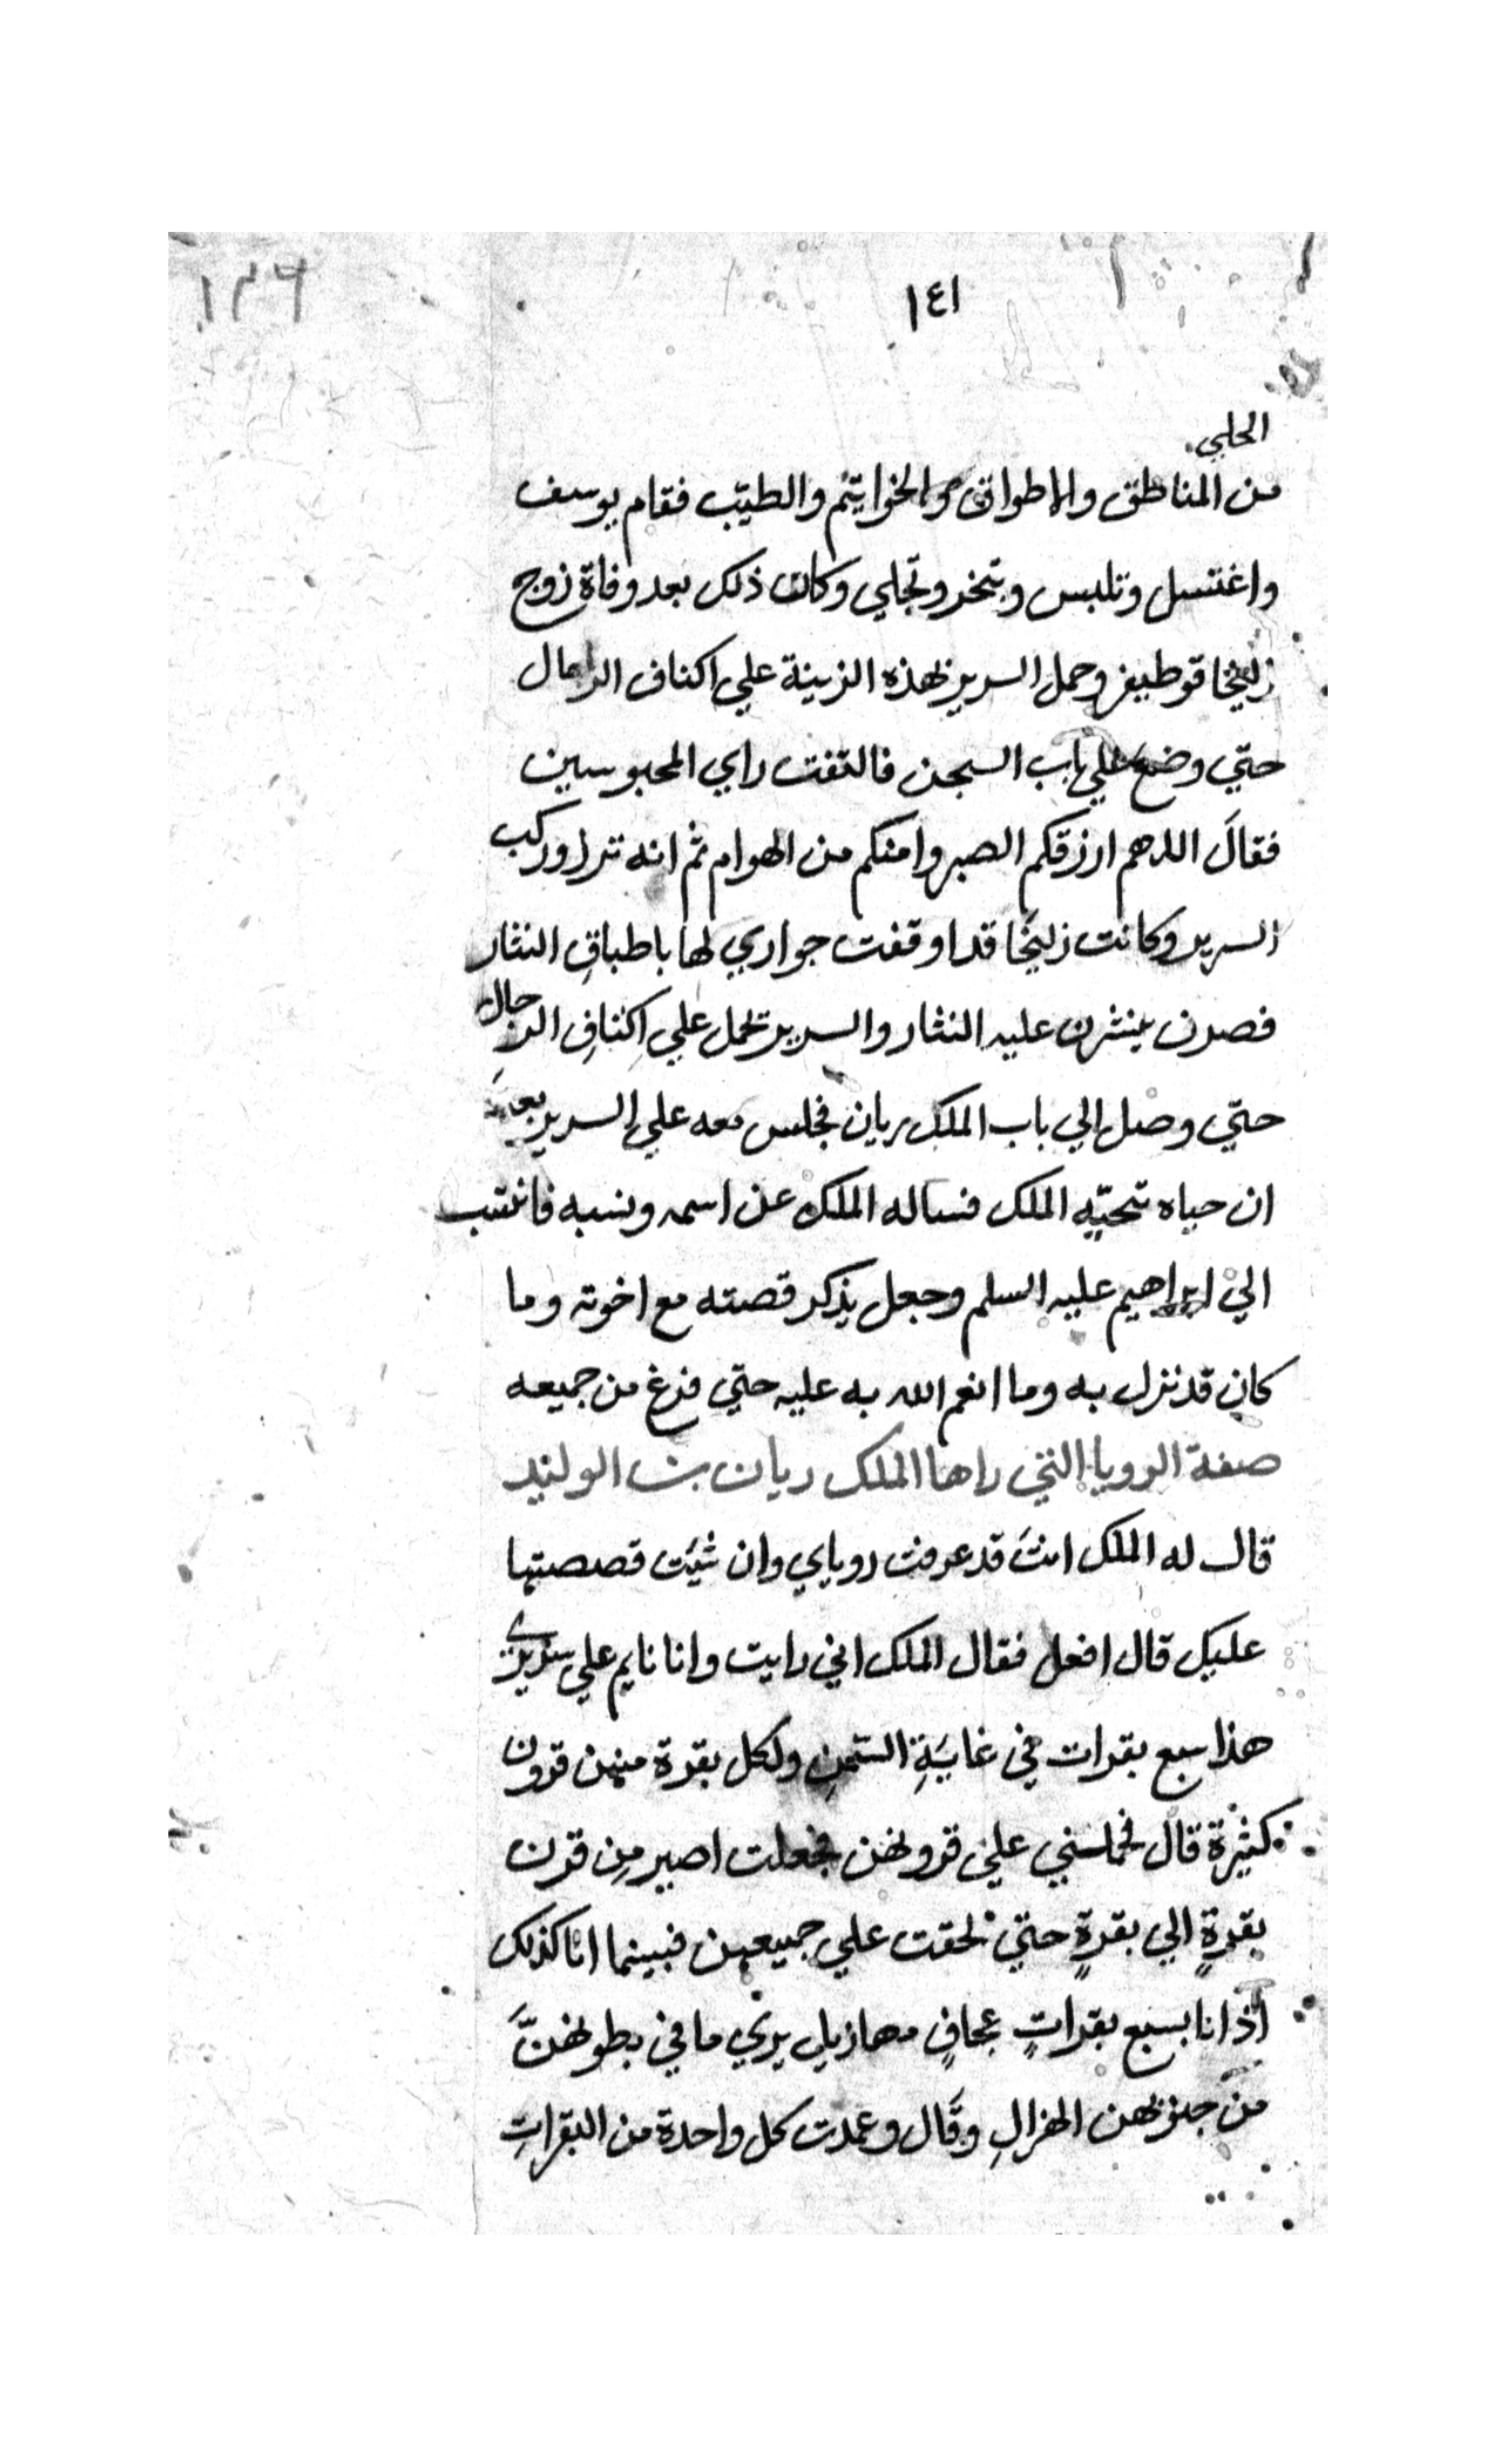 ١٣٦
١٤١
الحلي
من المناطق والاطواق والخواتيم والطيب فقام يوسف
واغتسل وتلبس وتبخر وتحلي وكان ذلك بعد وفاة زوج
زليخا قوطيفر وحمل السرير بهذه الزينة علي اكتاف الرجال
حتي وضع علي باب السجن فالتفت راي المحبوسين
فقالَ اللهم ارزقكم الصبر وامنكم من الهوام ثم انه نزل وركب
السرير وكانت زليخا قد اوقفت جواري لها باطباقِ النثار
فصرن ينثرن عليه النثار والسرير تحمل علي اكتافِ الرجال
حتي وصل الي باب الملك ريان فجلس معه علي السرير بعد
ان حياه تحيّه الملك فساله الملك عن اسمه ونسبه فانتسب
الي ابراهيم عليه السلم وجعل يذكر قصته مع اخوته وما
كان قد نزل به وما انعم الله به عليه حتي فرغ من جميعه
صفة الرويا التي راها الملك ريان بن الوليد
قال له الملك انتَ قد عرفت روياي وان شيَت قصصتها
عليك قال افعل فقال الملك اني رايت وانا نايم علي سريري
هذا سبع بقرات في غايَةِ السّمنِ ولكل بقرة منهن قرون
كثيرة قال فحملنني علي قرونهن فجعلت اصير مِن قرن
بقرةٍ الي بقرةٍ حتي لحقت علي جميعهن فبينما انا كذلك
اذ انا بسبع بقراتٍ عجافٍ مهازيل يري ما في بطونهنَّ
من جنوبهن الهزالِ وقال وعمدت كل واحدة من البقراتِ